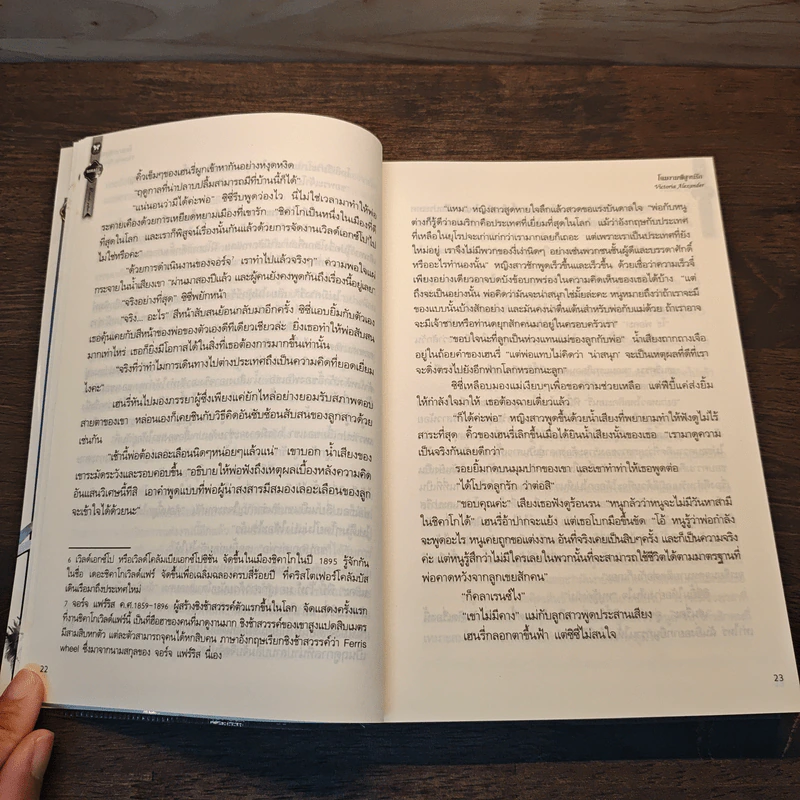 คิ้วเข้มๆของเฮนรี่ผูกเข้าหากันอย่างหงุดหงิด
"ฤดูกาลที่น่าปลาบปลื้มสามารถมีที่บ้านนี้ก็ได้"
"แน่นอนว่ามีได้ค่ะพ่อ" ซิซีรีบพูดว่องไว นี่ไม่ใช่เวลามาทำให้พ่อ
ระคายเคืองด้วยการเหยียดหยามเมืองที่เขารัก "ชิคาโกเป็นหนึ่งในเมืองที่ดี
ที่สุดในโลก และเราก็พิสูจน์เรื่องนั้นกันแล้วด้วยการจัดงานเวิลด์เอกซ์โปไป
ไม่ใช่หรือคะ"
"ด้วยการดำเนินงานของจอร์จ เราทำไปแล้วจริงๆ" ความพอใจแผ่
กระจายในน้ำเสียงเขา "ผ่านมาสองปีแล้ว และผู้คนยังคงพูดกันถึงเรื่องนี้อยู่เลย"
"จริงอย่างที่สุด" ซิซีพยักหน้า
"จริง... อะไร" สีหน้าสับสนย้อนกลับมาอีกครั้ง ซิซีแอบยิ้มกับตัวเอง
เธอคุ้นเคยกับสีหน้าของพ่อของตัวเองดีทีเดียวเชียวล่ะ ยิ่งเธอทำให้พ่อสับสน
มากเท่าไหร่ เธอก็ยิ่งมีโอกาสได้ในสิ่งที่เธอต้องการมากขึ้นเท่านั้น
"จริงที่ว่าทำไมการเดินทางไปต่างประเทศถึงเป็นความคิดที่ยอดเยี่ยม
ไงคะ"
เฮนรี่หันไปมองภรรยาผู้ซึ่งเพียงแค่ยักไหล่อย่างยอมรับสภาพตอบ
สายตาของเขา หล่อนเองก็เคยชินกับวิธีคิดอันซับซ้อนสับสนของลูกสาวด้วย
เช่นกัน
"เช้านี้พ่อต้องเลอะเลือนนิดๆหน่อยๆแล้วแน่" เขาบอก น้ำเสียงของ
เขาระมัดระวังและรอบคอบขึ้น "อธิบายให้พ่อฟังถึงเหตุผลเบื้องหลังความคิด
อันแสนวิเศษนี้ทีสิ เอาคำพูดแบบที่พ่อผู้น่าสงสารมีสมองเลอะเลือนของลูก
จะเข้าใจได้ด้วยนะ"
6 เวิลด์เอกซ์โป หรือเวิลด์โคลัมเบียเอกซ์โปซิชั่น จัดขึ้นในเมืองชิคาโกในปี 1895 รู้จักกัน
ในชื่อ เดอะชิคาโกเวิลด์แฟร์ จัดขึ้นเพื่อเฉลิมฉลองครบสี่ร้อยปี ที่คริสโตเฟอร์โคลัมบัส
เดินเรือมาถึงประเทศใหม่
7 จอร์จ แฟร์ริส ค.ศ.1859-1896 ผู้สร้างชิงช้าสวรรค์ตัวแรกขึ้นในโลก จัดแสดงครั้งแรก
ที่งานชิคาโกเวิลด์แฟร์นี้ เป็นที่ฮือฮาของคนที่มาดูงานมาก ชิงช้าสวรรค์ของเขาสูงแปดสิบเมตร
มีสามสิบหกตัว แต่ละตัวสามารถจุคนได้หกสิบคน ภาษาอังกฤษเรียกชิงช้าสวรรค์ว่า Ferris
wheel ซึ่งมาจากนามสกุลของ จอร์จ แฟร์ริส นี่เอง
22
โฉมงามพิสูจน์รัก
Victoria Alexander
"แหม" หญิงสาวสูดหายใจลึกแล้วสวดขอแรงบันดาลใจ "พ่อกับหนู
ต่างก็รู้ดีว่าอเมริกาคือประเทศที่เยี่ยมที่สุดในโลก แม้ว่าอังกฤษกับประเทศ
ที่เหลือในยุโรปจะเก่าแก่กว่าเรามากเลยก็เถอะ แต่เพราะเราเป็นประเทศที่ยัง
ใหม่อยู่ เราจึงไม่มีพวกของงี่เง่านิดๆ อย่างเช่นพวกชนชั้นผู้ดีและบรรดาศักดิ์
หรืออะไรทำนองนั้น" หญิงสาวชักพูดเร็วขึ้นและเร็วขึ้น ด้วยเชื่อว่าความเร็วจี๋
เพียงอย่างเดียวอาจบดบังข้อบกพร่องในความคิดเห็นของเธอได้บ้าง "แต่
ถึงจะเป็นอย่างนั้น พ่อคิดว่ามันจะน่าสนุกใช่มั้ยล่ะคะ หนูหมายถึงว่าถ้าเราจะมี
ของแบบนั้นบ้างสักอย่าง และมันคงน่าตื่นเต้นสำหรับพ่อกับแม่ด้วย ถ้าเราอาจ
จะมีเจ้าชายหรือท่านดยุกสักคนมาอยู่ในครอบครัวเรา"
"ขอบใจนะที่ลูกเป็นห่วงแทนแม่ของลูกกับพ่อ" น้ำเสียงถากถางเจือ
อยู่ในถ้อยคำของเฮนรี่ "แต่พ่อแทบไม่คิดว่า 'น่าสนุก' จะเป็นเหตุผลที่ดีที่เรา
จะดิ่งตรงไปยังอีกฟากโลกหรอกนะลูก"
ซิซีเหลือบมองแม่เงียบๆเพื่อขอความช่วยเหลือ แต่ฟีบี้แค่ส่งยิ้ม
ให้กำลังใจมาให้ เธอต้องฉายเดี่ยวแล้ว
"ก็ได้ค่ะพ่อ" หญิงสาวพูดขึ้นด้วยน้ำเสียงที่พยายามทำให้ฟังดูไม่ไร้
สาระที่สุด คิ้วของเฮนรี่เลิกขึ้นเมื่อได้ยินน้ำเสียงนั้นของเธอ "เรามาดูความ
เป็นจริงกันเลยดีกว่า"
รอยยิ้มกดบนมุมปากของเขา และเขาทำท่าให้เธอพูดต่อ
"ได้โปรดลูกรัก ว่าต่อสิ"
"ขอบคุณค่ะ" เสียงเธอฟังดูร้อนรน "หนูกลัวว่าหนูจะไม่มีวันหาสามี
ในชิคาโกได้" เฮนรี่อ้าปากจะแย้ง แต่เธอโบกมือขึ้นขัด "โอ้ หนูรู้ว่าพ่อกำลัง
จะพูดอะไร หนูเคยถูกขอแต่งงาน อันที่จริงเคยเป็นสิบๆครั้ง และก็เป็นความจริง
ค่ะ แต่หนูรู้สึกว่าไม่มีใครเลยในพวกนั้นที่จะสามารถใช้ชีวิตได้ตามมาตรฐานที่
พ่อคาดหวังจากลูกเขยสักคน"
"ก็คลาเรนซ์ไง"
"เขาไม่มีคาง" แม่กับลูกสาวพูดประสานเสียง
เฮนรี่กลอกตาขึ้นฟ้า แต่ซิซีไม่สนใจ
23